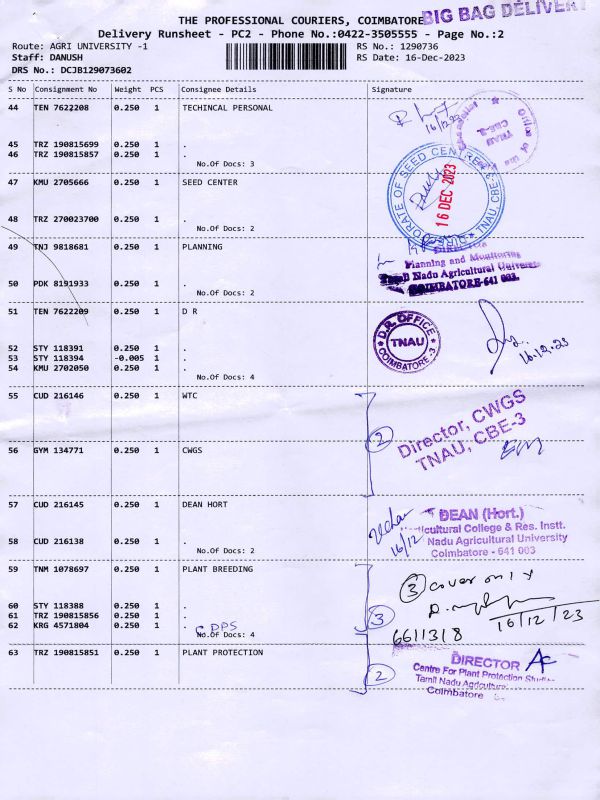 THE PROFESSIONAL COURIERS, COIMBATORE
BIG BAG DELIVERY
Delivery Runsheet - PC2 - Phone No.:0422-3505555 - Page No.:2
Route: AGRI UNIVERSITY -1
RS No.: 1290736
Staff: DANUSH
RS Date: 16-Dec-2023
DRS No.: DCJB129073602
S No Consignment No Weight PCS Consignee Details Signature
44 TEN 7622208 0.250 1 TECHINCAL PERSONAL
16/12/23
TNAU
CBE-3
45 TRZ 190815699 0.250 1 .
46 TRZ 190815857 0.250 1 .
No.Of Docs: 3
47 KMU 2705666 0.250 1 SEED CENTER
DIRECTORATE OF SEED CENTRE
16 DEC 2023
TNAU, CBE-3
48 TRZ 270023700 0.250 1 .
No.Of Docs: 2
49 TNJ 9818681 0.250 1 PLANNING
Planning and Monitoring
Tamil Nadu Agricultural University
COIMBATORE-641 003.
50 PDK 8191933 0.250 1 .
No.Of Docs: 2
51 TEN 7622209 0.250 1 D R
D.R. OFFICE
TNAU
COIMBATORE-3
16.12.23
52 STY 118391 0.250 1 .
53 STY 118394 -0.005 1 .
54 KMU 2702050 0.250 1 .
No.Of Docs: 4
55 CUD 216146 0.250 1 WTC
2
Director, CWGS
TNAU, CBE-3
56 GYM 134771 0.250 1 CWGS
57 CUD 216145 0.250 1 DEAN HORT
16/12
DEAN (Hort.)
Horticultural College & Res. Instt.
Nadu Agricultural University
Coimbatore - 641 003
58 CUD 216138 0.250 1 .
No.Of Docs: 2
59 TNM 1078697 0.250 1 PLANT BREEDING
3 cover only
16/12/23
60 STY 118388 0.250 1 .
61 TRZ 190815856 0.250 1 .
62 KRG 4571804 0.250 1 .
CPPS
No.Of Docs: 4
3
6611318
63 TRZ 190815851 0.250 1 PLANT PROTECTION
2
DIRECTOR
Centre For Plant Protection Studies
Tamil Nadu Agricultural
Coimbatore